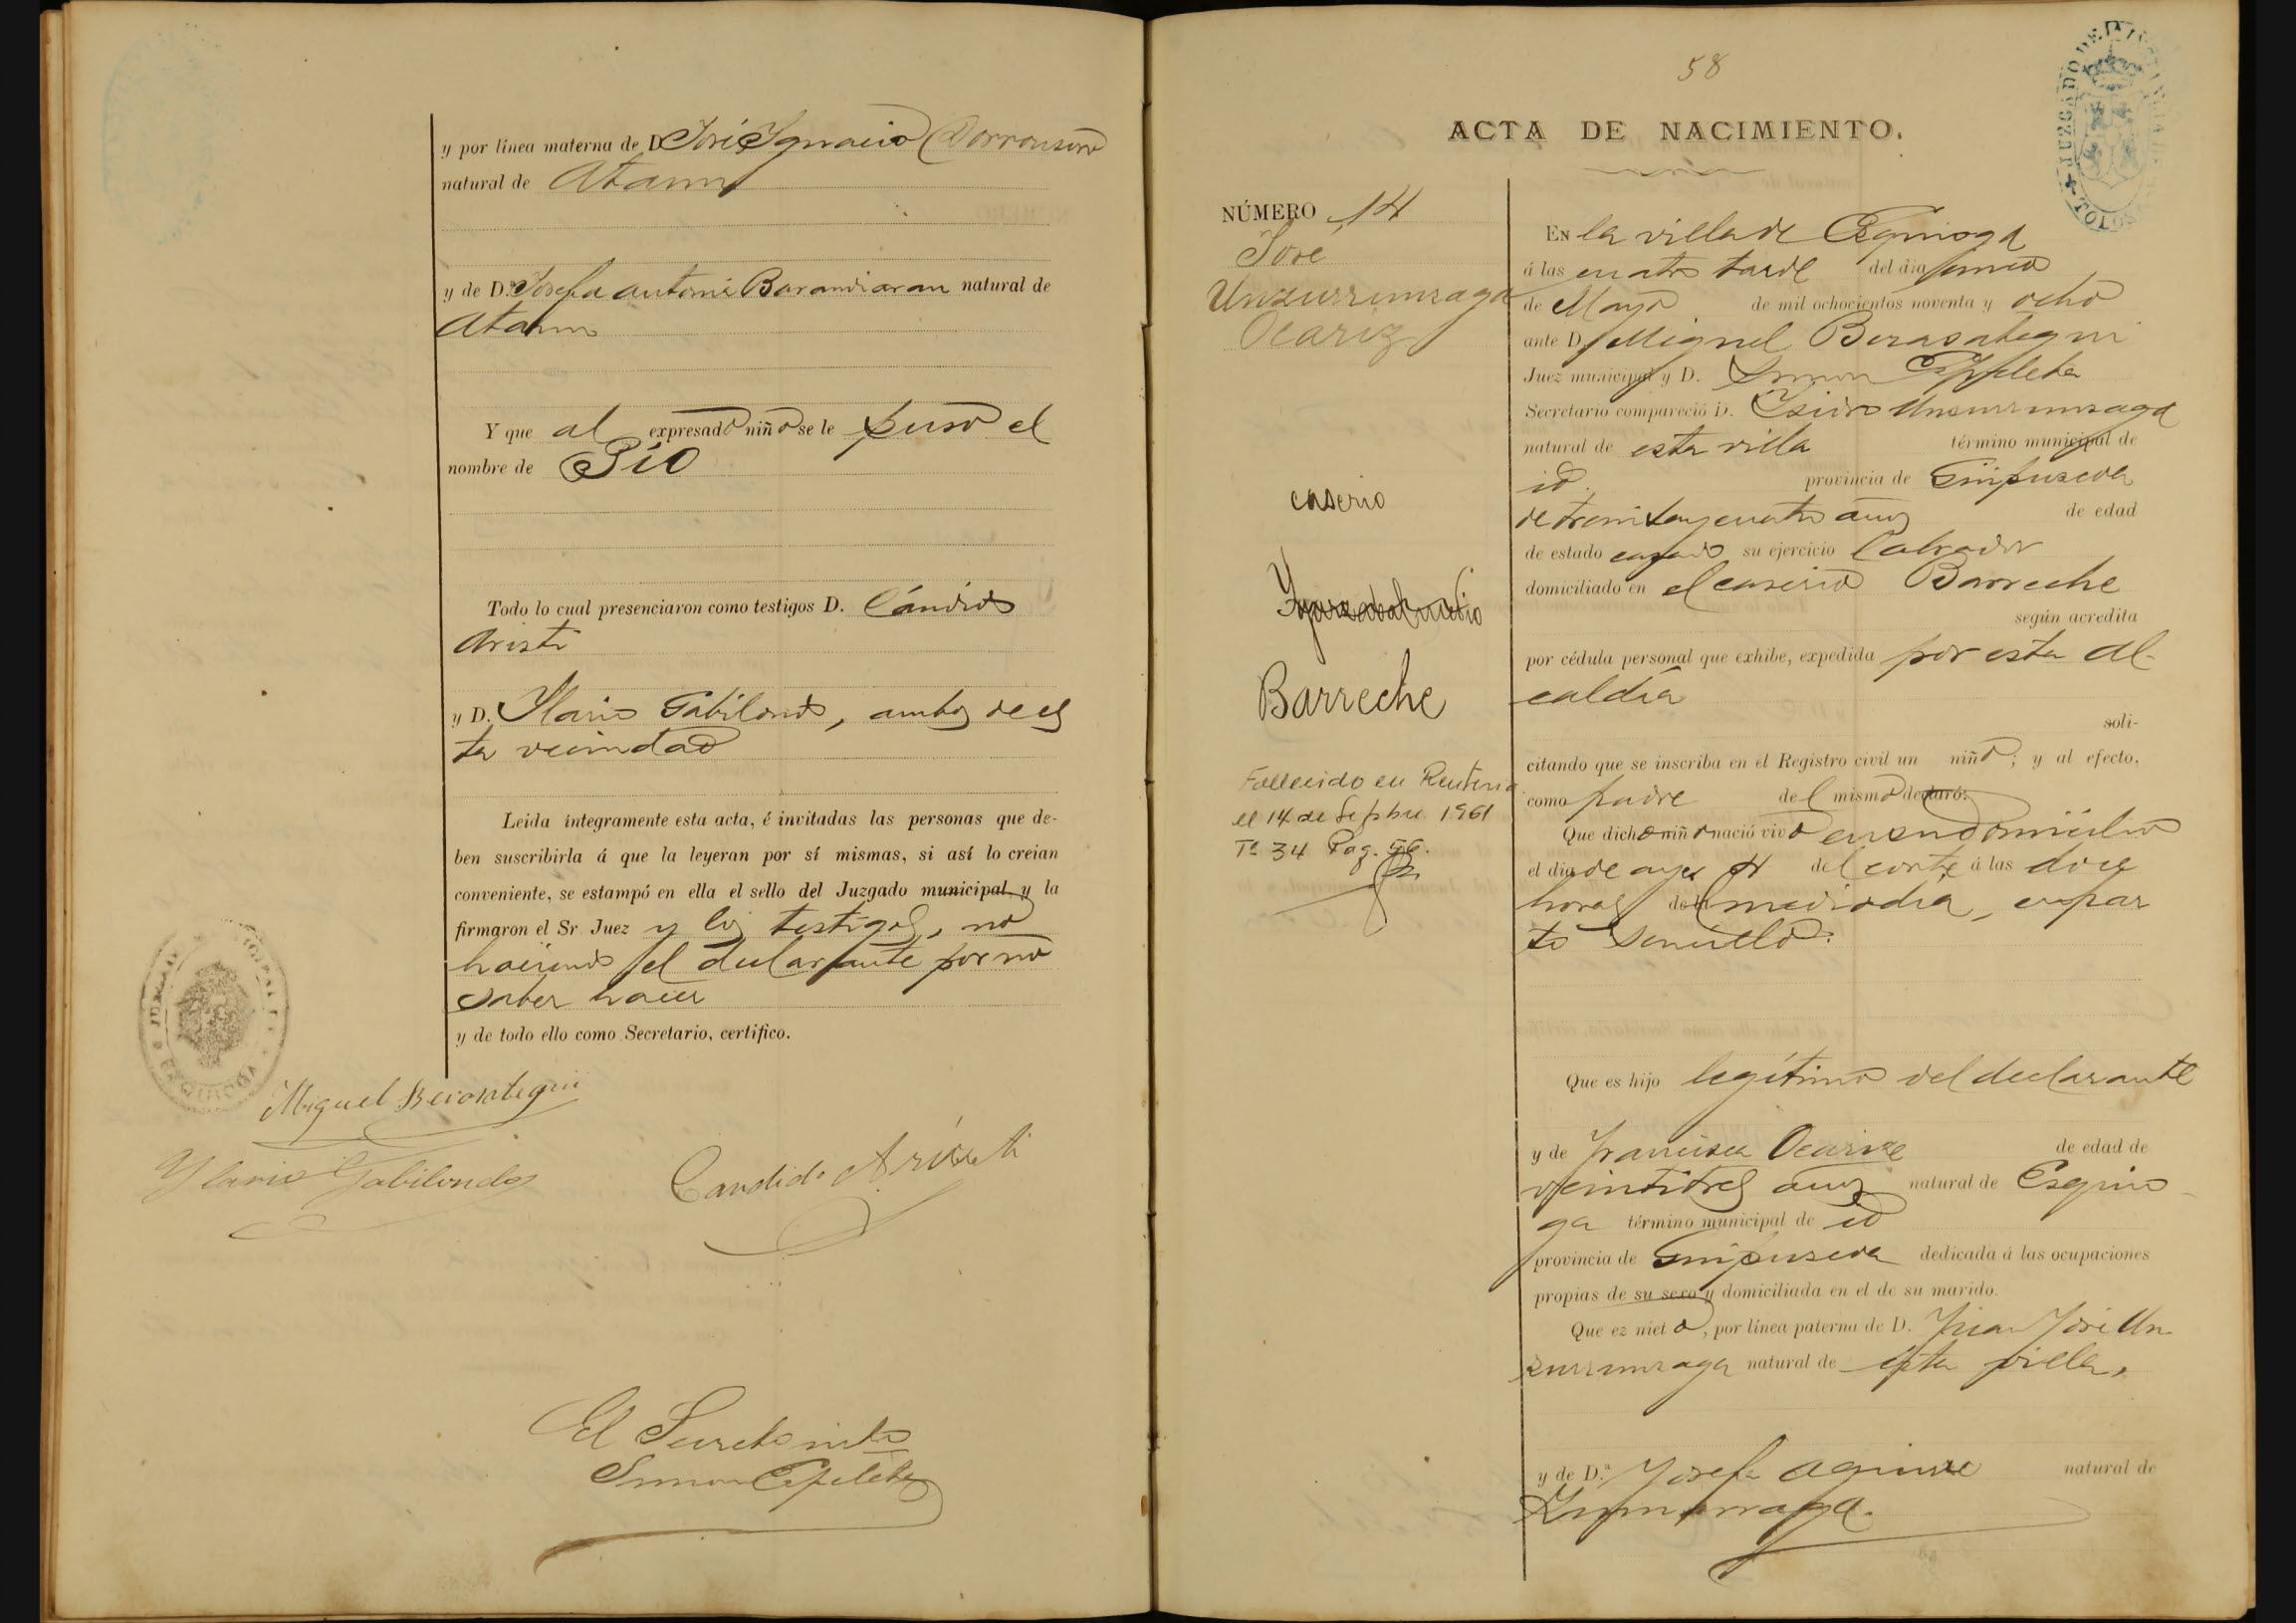 y por línea materna de D. José Ygnacio Dorronsoro
natural de Ataun
y de D.ª Josefa Antonia Barandiaran natural de
Ataun
Y que al expresado niño se le puso el
nombre de Pío
Todo lo cual presenciaron como testigos D. Cándido
Aristi
y D. Ylario Gabilondo, ambos de es
ta vecindad
Leida íntegramente esta acta, é invitadas las personas que de-
ben suscribirla á que la leyeran por sí mismas, si así lo creian
conveniente, se estampó en ella el sello del Juzgado municipal y la
firmaron el Sr. Juez y los testigos, no
haciendo el declarante por no
saber hacer
y de todo ello como Secretario, certifico.
Miguel Berasategui
Ylario Gabilondo
Candido Aristi
El Secretario
Simon Ezpeleta
58
ACTA DE NACIMIENTO.
NÚMERO 14
José
Unzurrunzaga
Ocariz
caserio
Barreche
Fallecido en Renteria
el 14 de Sepbre 1961
Tº 34 Pag. 56.
En la villa de Ezquioga
á las cuatro tarde del dia cinco
de Mayo de mil ochocientos noventa y ocho
ante D. Miguel Berasategui
Juez municipal y D. Simon Ezpeleta
Secretario compareció D. Ysidro Unzurrunzaga
natural de esta villa término municipal de
id. provincia de Guipuzcoa
de treinta y cuatro años de edad
de estado casado su ejercicio labrador
domiciliado en el caserio Barreche
según acredita
por cédula personal que exhibe, expedida por esta Al-
caldía
soli-
citando que se inscriba en el Registro civil un niño; y al efecto,
como padre del mismo declaró:
Que dicho niño nació vivo en su domicilio
el dia de ayer 4 del corte á las doce
horas del mediodía, en par
to sencillo.
Que es hijo legítimo del declarante
y de Francisca Ocariz de edad de
veintitres años natural de Ezquio-
ga término municipal de id
provincia de Guipuzcoa dedicada á las ocupaciones
propias de su sexo y domiciliada en el de su marido.
Que ez nieto, por línea paterna de D. Juan José Un
zurrunzaga natural de esta villa,
y de D.ª Josefa Aguirre natural de
Zumarraga.